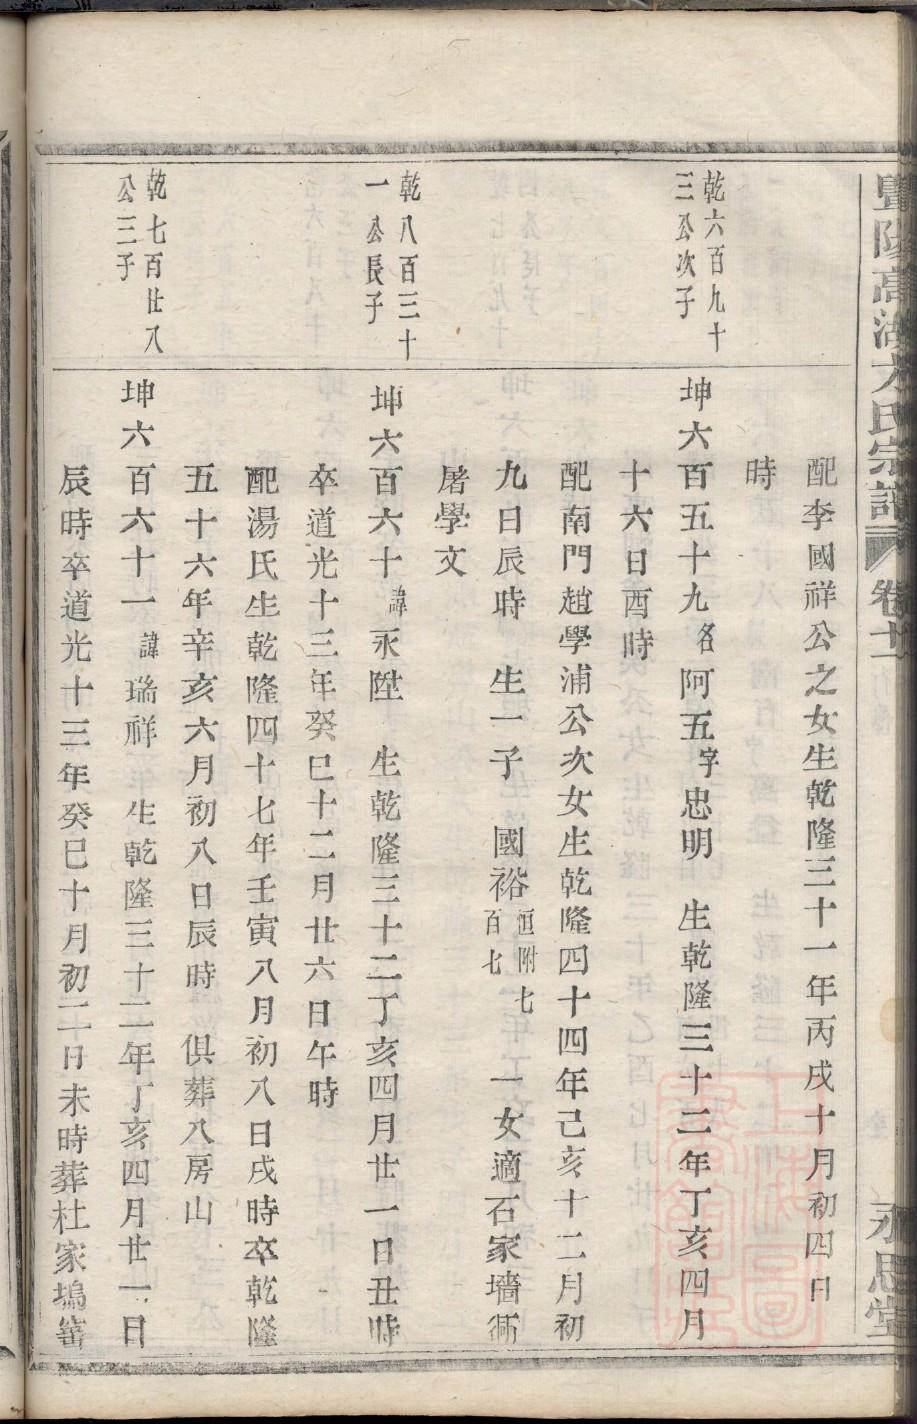 暨陽高湖方氏宗譜 卷十一 永思堂
配李國祥公之女生乾隆三十一年丙戌十月初四日
時
乾六百九十
三公次子
坤六百五十九名阿五字忠明 生乾隆三十二年丁亥四月
十六日酉時
配南門趙學浦公次女生乾隆四十四年己亥十二月初
九日辰時 生一子 國裕恒七百七附 一女適石家墻衕
屠學文
乾八百三十
一公長子
坤六百六十諱永陞 生乾隆三十二丁亥四月廿一日丑時
卒道光十三年癸巳十二月廿六日午時
配湯氏生乾隆四十七年壬寅八月初八日戌時卒乾隆
五十六年辛亥六月初八日辰時 俱葬八房山
乾七百廿八
公三子
坤六百六十一諱瑞祥 生乾隆三十二年丁亥四月廿一日
辰時卒道光十三年癸巳十月初二日未時葬杜家塢